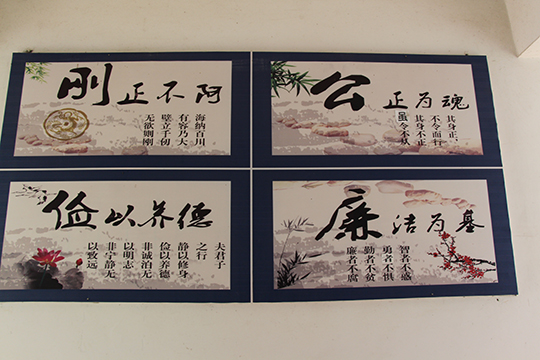 刚正不阿
海纳百川
有容乃大
壁立千仞
无欲则刚
公正为魂
其身正,
不令而行
其身不正
虽令不从
俭以养德
夫君子
之行
静以修身
俭以养德
非淡泊无
以明志
非宁静无
以致远
廉洁为基
智者不惑
勇者不惧
勤者不贫
廉者不腐